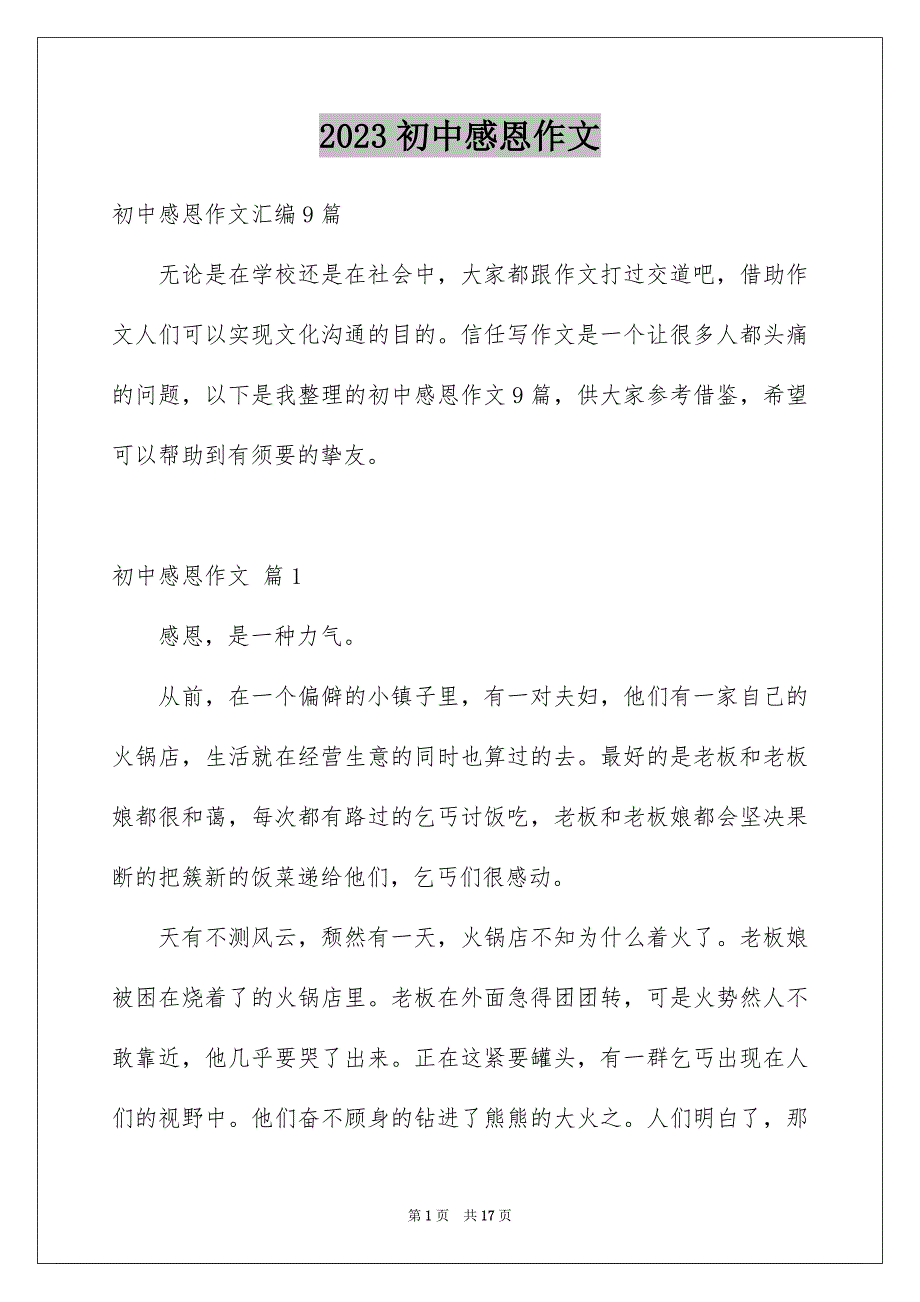 2023初中感恩作文
初中感恩作文汇编9篇
无论是在学校还是在社会中，大家都跟作文打过交道吧，借助作
文人们可以实现文化沟通的目的。信任写作文是一个让很多人都头痛
的问题，以下是我整理的初中感恩作文9篇，供大家参考借鉴，希望
可以帮助到有须要的挚友。
初中感恩作文 篇1
感恩，是一种力气。
从前，在一个偏僻的小镇子里，有一对夫妇，他们有一家自己的
火锅店，生活就在经营生意的同时也算过的去。最好的是老板和老板
娘都很和蔼，每次都有路过的乞丐讨饭吃，老板和老板娘都会坚决果
断的把簇新的饭菜递给他们，乞丐们很感动。
天有不测风云，颓然有一天，火锅店不知为什么着火了。老板娘
被困在烧着了的火锅店里。老板在外面急得团团转，可是火势然人不
敢靠近，他几乎要哭了出来。正在这紧要罐头，有一群乞丐出现在人
们的视野中。他们奋不顾身的钻进了熊熊的大火之。人们明白了，那
第1页 共17页